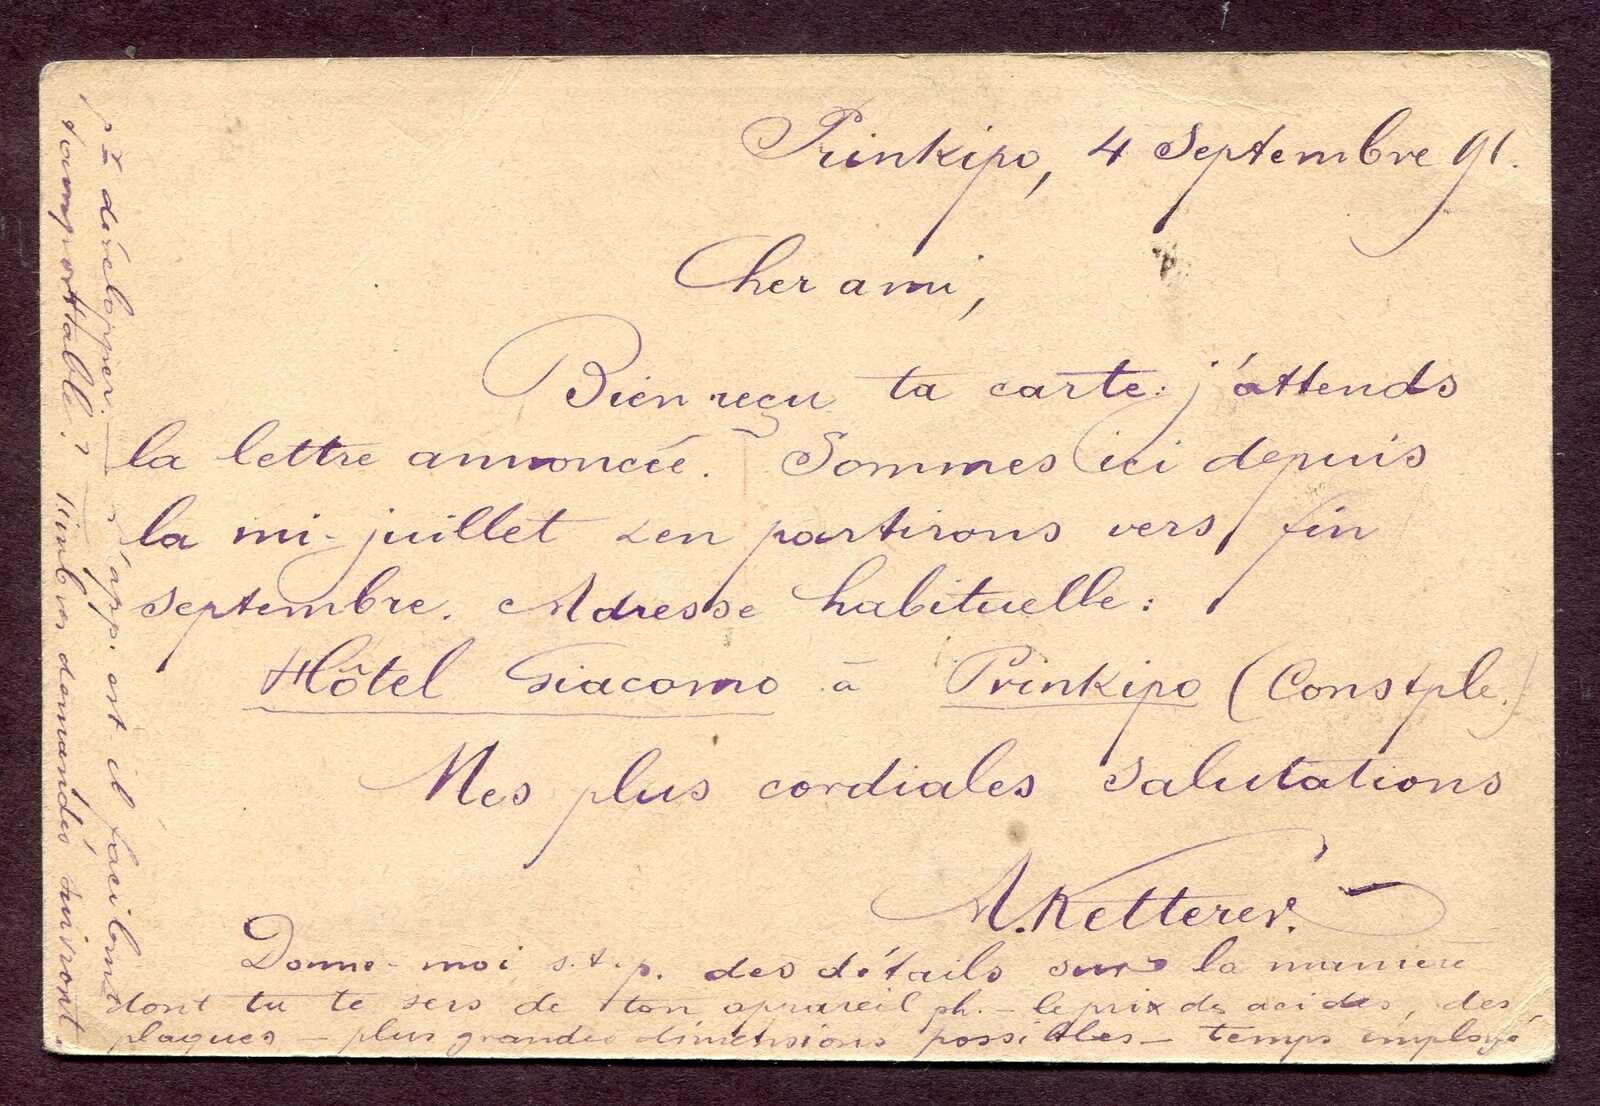 Prinkipo, 4 Septembre 91.
Cher ami,
Bien reçu ta carte: j'attends
la lettre annoncée. Sommes ici depuis
la mi-juillet & en partirons vers fin
septembre. Adresse habituelle:
Hôtel Giacomo à Prinkipo (Constple.)
Mes plus cordiales salutations
A. Ketterer.
Donne-moi s.t.p. des détails sur la manière
dont tu te sers de ton appareil ph. - le prix de acides, des
plaques - plus grandes dimensions possibles - temps employé
pr développer. - L'app. est il facilemt
transportable? Timbres demandés suivront.